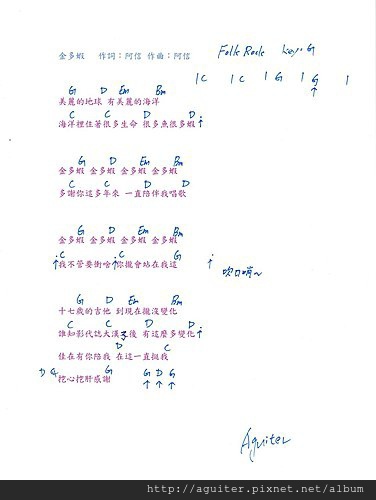 金多蝦 作詞：阿信 作曲：阿信 Folk Rock key: G
| C | C | G | G |
G D Em Bm
美麗的地球 有美麗的海洋
C C D D
海洋裡住著很多生命 很多魚很多蝦
G D Em Bm
金多蝦 金多蝦 金多蝦 金多蝦
C C D D
多謝你這多年來 一直陪伴我唱歌
G D Em Bm
金多蝦 金多蝦 金多蝦 金多蝦
C C G
我不管要衝啥 你攏會站在我這
吹口哨~
G D Em Bm
十七歲的吉他 到現在攏沒變化
C C D D
誰知影代誌大漢了後 有這麼多變化
D C
佳在有你陪我 在這一直挺我
D G G D G
挖心挖肝感謝
Aguiter
http://aguiter.pixnet.net/album